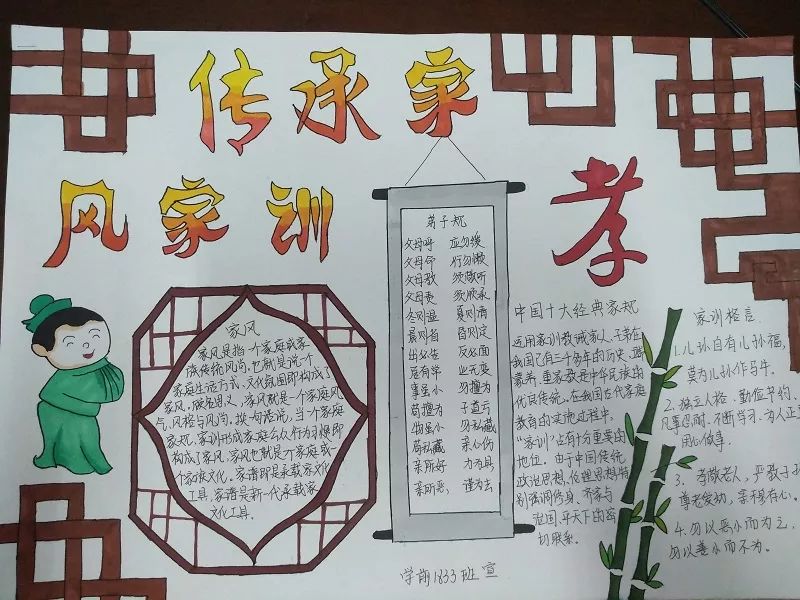 传承家
风家训
孝
家风
家风是指一个家庭或家
族传统风尚，也就是说一个
家庭生活方式、文化氛围即构成了
家风，顾名思义，家风就是一个家庭风
气、风格与风尚。换句话说，当一个家庭
家规、家训形成家庭公众行为习惯即
构成了家风，家风也就是一个家庭或一
个家族文化。家谱即是承载家文化
工具，家谱是新一代承载家
文化工具。
弟子规
父母呼 应勿缓
父母命 行勿懒
父母教 须敬听
父母责 须顺承
冬则温 夏则凊
晨则省 昏则定
出必告 反必面
居有常 业无变
事虽小 勿擅为
苟擅为 子道亏
物虽小 勿私藏
苟私藏 亲心伤
亲所好 力为具
亲所恶， 谨为去
中国十大经典家规
运用家训教诫家人、子弟在
我国已有三千多年的历史，
素养、重家教是中华民族的
优良传统。在我国古代家庭
教育的实施过程中，
“家训”占有十分重要的
地位。由于中国传统
政治思想、伦理思想特
别强调修身、齐家与
治国、平天下的密
切联系。
家训格言
1.儿孙自有儿孙福，
莫为儿孙作马牛。
2.独立人格，勤俭节约、
凡事忍耐、不断学习、为人正
用心做事。
3.孝敬老人，严教子孙
尊老爱幼，亲穆有心。
4.勿以恶小而为之，
勿以善小而不为。
学前1833班 宣